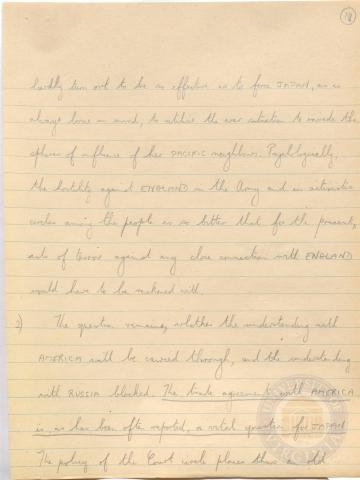 18
hardly turn out to be so effective as to force JAPAN, as is
always borne in mind, to utilise the war situation to invade the
spheres of influence of her PACIFIC neighbours. Psychologically,
the hostility against ENGLAND in the Army and in activistic
circles among the people is so bitter that for the present,
acts of terror against any close connection with ENGLAND
would have to be reckoned with.
2) The question remains, whether the understanding with
AMERICA will be carried through, and the understanding
with RUSSIA blocked. The trade agreement with AMERICA
is, as has been often reported, a vital question for JAPAN
The policy of the Court circle places their old